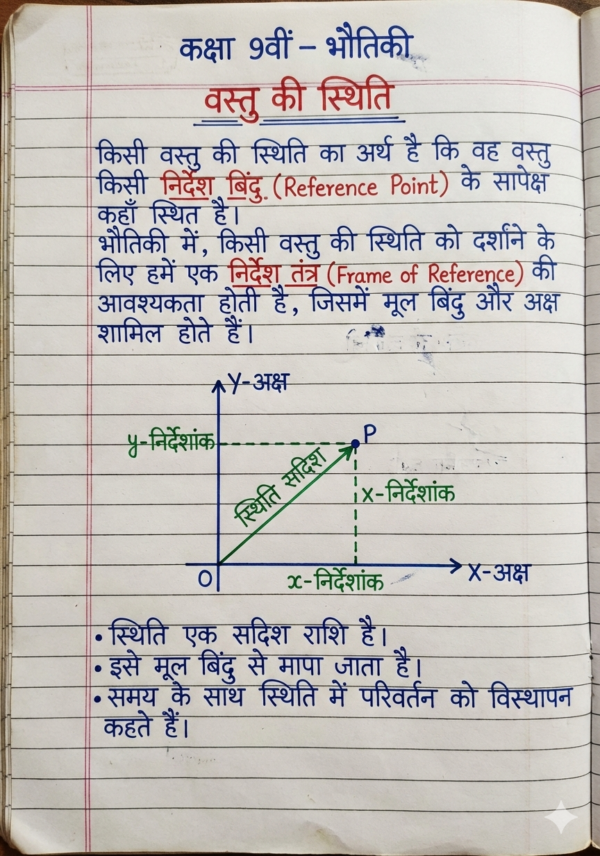 कक्षा 9वीं – भौतिकी
वस्तु की स्थिति
किसी वस्तु की स्थिति का अर्थ है कि वह वस्तु
किसी निर्देश बिंदु (Reference Point) के सापेक्ष
कहाँ स्थित है।
भौतिकी में, किसी वस्तु की स्थिति को दर्शाने के
लिए हमें एक निर्देश तंत्र (Frame of Reference) की
आवश्यकता होती है, जिसमें मूल बिंदु और अक्ष
शामिल होते हैं।
Y-अक्ष
y-निर्देशांक
P
स्थिति सदिश
x-निर्देशांक
O
x-निर्देशांक
X-अक्ष
• स्थिति एक सदिश राशि है।
• इसे मूल बिंदु से मापा जाता है।
• समय के साथ स्थिति में परिवर्तन को विस्थापन
कहते हैं।